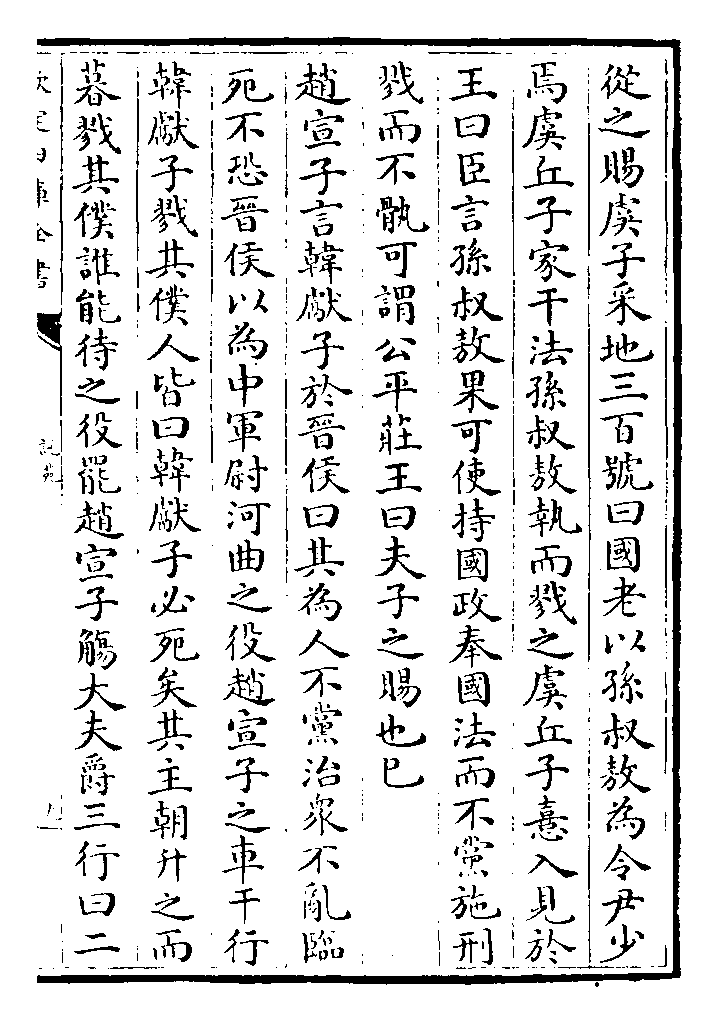 從之賜虞子采地三百號曰國老以孫叔敖為令尹少
焉虞丘子家干法孫叔敖執而戮之虞丘子憙入見於
王曰臣言孫叔敖果可使持國政奉國法而不黨施刑
戮而不骩可謂公平莊王曰夫子之賜也已
趙宣子言韓獻子於晉侯曰其為人不黨治衆不亂臨
死不恐晉侯以為中軍尉河曲之役趙宣子之車干行
韓獻子戮其僕人皆曰韓獻子必死矣其主朝升之而
暮戮其僕誰能待之役罷趙宣子觴大夫爵三行曰二
欽定四庫全書
說苑